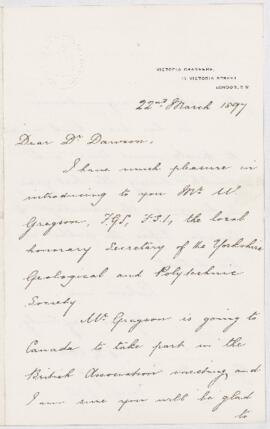 VICTORIA CHAMBERS,
VICTORIA STREET
LONDON, S.W.
22nd March 1897
Dear Dr Dawson,
I have much pleasure in
introducing to you Mr. W
Gregson, F.G.S, F.S.I, the local
honorary Secretary of the Yorkshire
Geological and Polytechnic
Society
Mr. Gregson is going to
Canada to take part in the
British Association meeting, and
I am sure you will be glad
to